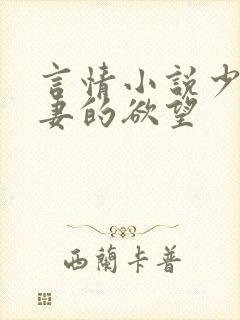 言情小説少
妻的欲望
西蘭卡普